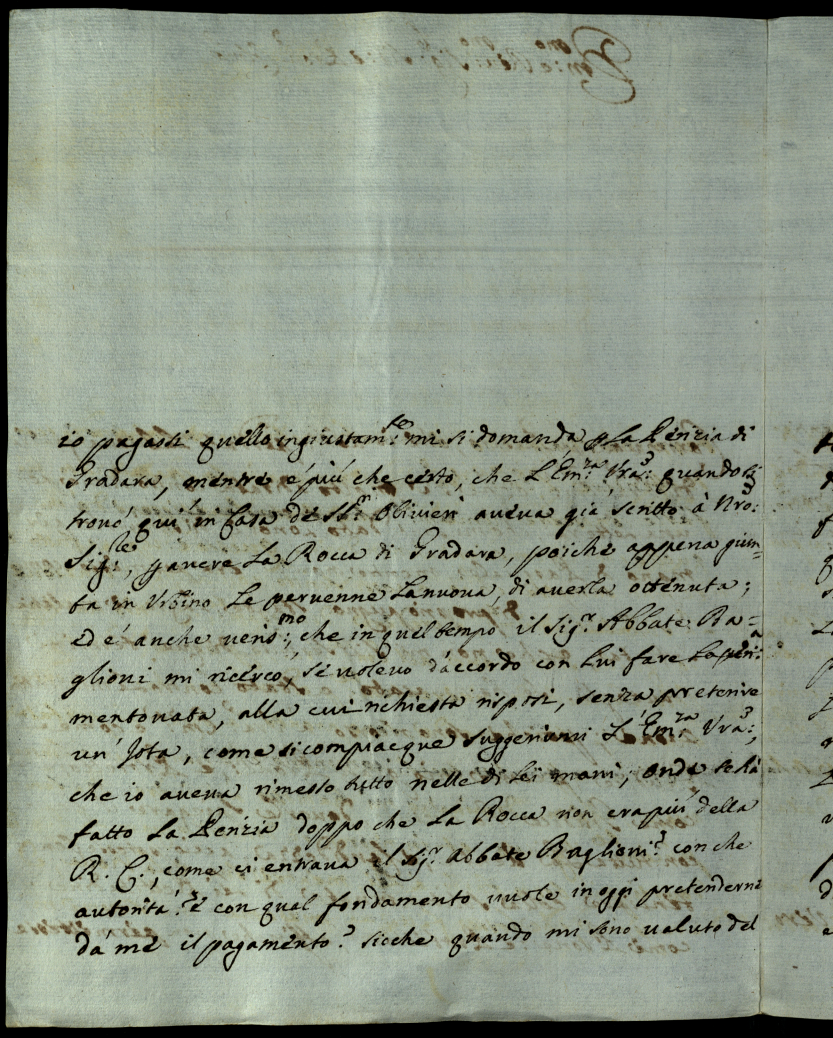 io pagassi quello ingiustam.te mi si domanda p La Perizia di
Gradara, mentre é più che certo, che L'Em.za Vra: quando si
trovó qui in Casa de SS.ri Olivieri aveva giá scritto à Nro:
Sig.le, p avere La Rocca di Gradara, poiche appena giun=
ta in Urbino Le pervenne La nuova, di averla ottenuta;
ed é anche veris.mo; che in quel tempo il Sig.r Abbate Ba=
glioni mi ricercó, se volevo d'accordo con Lui fare La peri:a
mentovata, alla cui richiesta risposi, senza preterire
un' Jota, come si compiacque suggerirmi L'Em.za Vra:,
che io aveva rimesso tutto nelle di Lei mani; onde se há
fatto La Perizia doppo che La Rocca non era piú della
R. C., come ci entrava il Sig.r Abbate Baglioni? con che
autoritá? é con qual fondamento vuole in oggi pretenderne
dá me il pagamento? sicche quando mi sono valuto del